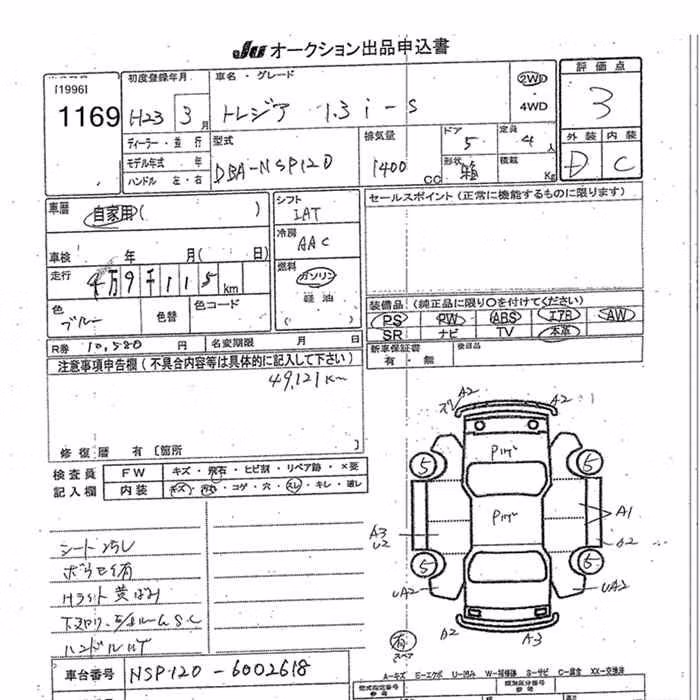 JU オークション出品申込書
[1996]
1169
初度登録年月
H23 3月
ディーラー・並行
モデル年式 年
ハンドル 左・右
車名・グレード
トレジア 1.3 i-S
2WD
4WD
評価点
3
外装 内装
D C
型式
DBA-NSP120
排気量
1400 CC
ドア
5
定員
4人
形状
箱
積載
Kg
車歴
自家用( )
車検 年 月( 日)
走行
4万9千115km
色
ブルー
色替
色コード
シフト
IAT
冷房
AAC
燃料
ガソリン
軽油
( )
セールスポイント(正常に機能するものに限ります)
装備品(純正品に限り○を付けてください)
PS PW ABS エアB AW
SR ナビ TV 本革
新車保証書
有・無
後日品
R券 10,580 円
名変期限 月 日
注意事項申告欄(不具合内容等は具体的に記入して下さい)
49,121km
修復歴 有[箇所 ]
検査員
記入欄
FW キズ・飛石・ヒビ割・リペア跡・×要
内装 キズ・汚れ・コゲ・穴・スレ・キレ・逓レ
シート
ボラセイ有
Hライト黄ばみ
下回り、
ハンドル
車台番号 NSP120-6002618
A2
A2
Pｲｹﾞ
Pｲｹﾞ
5
5
5
5
A3
U2
A1
A2
UA2
UA2
A2
A3
有
スペア
A-キズ E-エクボ U-凹み W-補修跡 S-サビ C-腐食 XX-交換済
型式指定番号
類別区分番号
参考